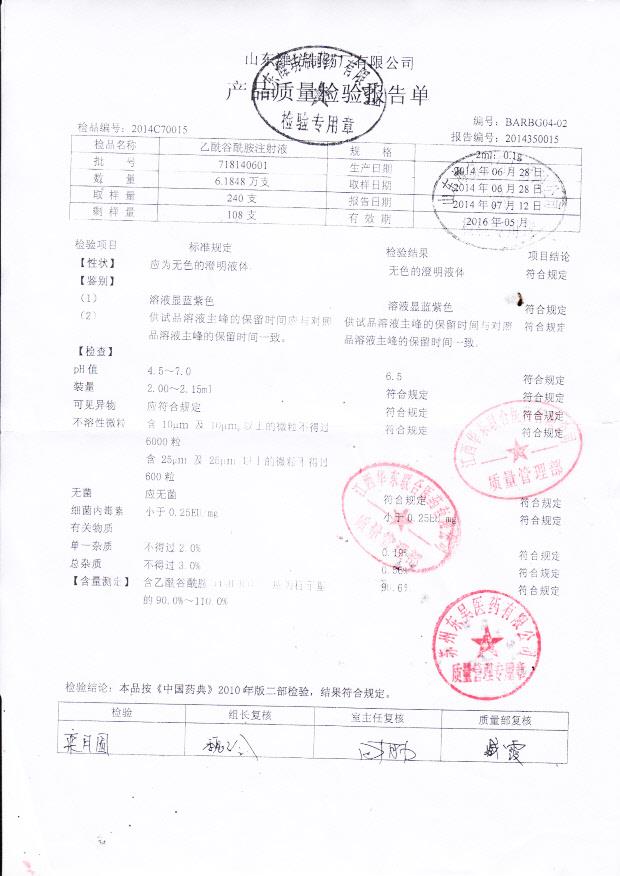 山东潍坊制药厂有限公司
产品质量检验报告单
检验专用章
编号：BARBG04-02
检品编号：2014C70015
报告编号：2014350015
检品名称 乙酰谷酰胺注射液 规 格 2ml：0.1g
批 号 718140601 生产日期 2014年06月28日
数 量 6.1848万支 取样日期 2014年06月28日
取 样 量 240支 报告日期 2014年07月12日
剩 样 量 108支 有 效 期 2016年05月
检验项目 标准规定 检验结果 项目结论
【性状】 应为无色的澄明液体 无色的澄明液体 符合规定
【鉴别】
（1） 溶液显蓝紫色 溶液显蓝紫色 符合规定
（2） 供试品溶液主峰的保留时间应与对照 供试品溶液主峰的保留时间与对照 符合规定
品溶液主峰的保留时间一致。 品溶液主峰的保留时间一致.
【检查】
pH值 4.5~7.0 6.5 符合规定
装量 2.00~2.15ml 符合规定 符合规定
可见异物 应符合规定 符合规定 符合规定
不溶性微粒 含 10μm 及 10μm 以上的微粒不得过 符合规定 符合规定
6000粒
含 25μm 及 25μm 以上的微粒不得过
600粒
无菌 应无菌 符合规定 符合规定
细菌内毒素 小于0.25EU mg 小于0.25EU mg 符合规定
有关物质
单一杂质 不得过2.0% 符合规定
总杂质 不得过3.0% 符合规定
【含量测定】 含乙酰谷酰胺 应为标示量 符合规定
的90.0%~110.0%
江西华东联合医药有限公司
质量管理部
江西华东联合医药有限公司
质量管理部
苏州东吴医药有限公司
质量管理专用章
检验结论：本品按《中国药典》2010年版二部检验，结果符合规定。
检验 组长复核 室主任复核 质量部复核
栾月圆 臧霞